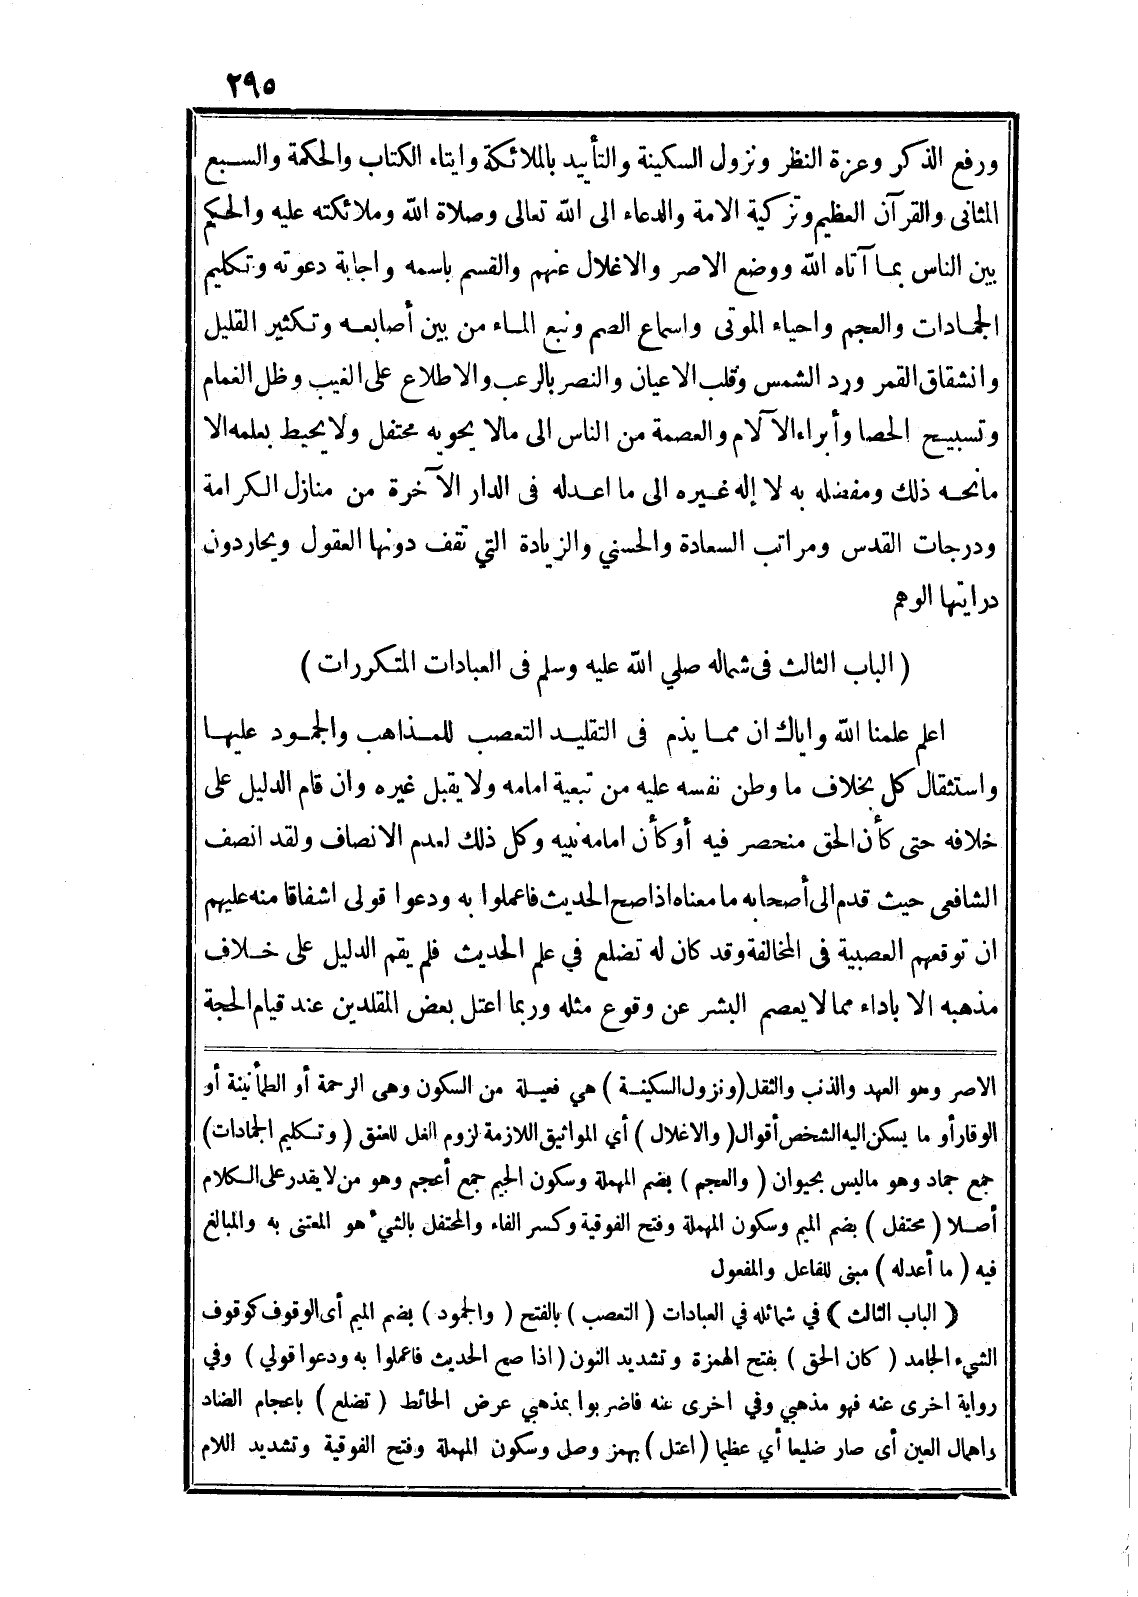 ٢٩٥
ورفع الذكر وعزة النظر ونزول السكينة والتأييد بالملائكة وايتاء الكتاب والحكمة والسبع
المثانى والقرآن العظيم وتزكية الامة والدعاء الى الله تعالى وصلاة الله وملائكته عليه والحكم
بين الناس بما آتاه الله ووضع الاصر والاغلال عنهم والقسم باسمه واجابة دعوته وتكليم
الجمادات والعجم واحياء الموتى واسماع الصم ونبع الماء من بين أصابعه وتكثير القليل
وانشقاق القمر ورد الشمس وقلب الاعيان والنصر بالرعب والاطلاع على الغيب وظل الغمام
وتسبيح الحصا وأبراء الآلام والعصمة من الناس الى مالا يحويه محتفل ولا يحيط بعلمه الا
مانحه ذلك ومفضله به لا إله غيره الى ما اعدله فى الدار الآخرة من منازل الكرامة
ودرجات القدس ومراتب السعادة والحسني والزيادة التي تقف دونها العقول ويحاردون
درايتها الوهم
( الباب الثالث فى شماله صلي الله عليه وسلم فى العبادات المتكررات )
اعلم علمنا الله واياك ان مما يذم فى التقليد التعصب للمذاهب والجمود عليها
واستثقال كل بخلاف ما وطن نفسه عليه من تبعية امامه ولا يقبل غيره وان قام الدليل على
خلافه حتى كأن الحق منحصر فيه أو كأن امامه نبيه وكل ذلك لعدم الانصاف ولقد انصف
الشافعى حيث قدم الى أصحابه ما معناه اذا صح الحديث فاعملوا به ودعوا قولى اشفاقا منه عليهم
ان توقعهم العصبية فى المخالفة وقد كان له تضلع في علم الحديث فلم يقم الدليل على خلاف
مذهبه الا باداء مما لا يعصم البشر عن وقوع مثله وربما اعتل بعض المقلدين عند قيام الحجة
الاصر وهو العهد والذنب والثقل (ونزول السكينة ) هي فعيلة من السكون وهى الرحمة أو الطمأنينة أو
الوقار أو ما يسكن اليه الشخص أقوال ( والاغلال ) أي المواثيق اللازمة لزوم الغل للعنق ( وتكليم الجمادات)
جمع جماد وهو ماليس بحيوان ( والعجم ) بضم المهملة وسكون الجيم جمع أعجم وهو من لا يقدر على الكلام
أصلا ( محتفل ) بضم الميم وسكون المهملة وفتح الفوقية وكسر الفاء والمحتفل بالشيء هو المعتنى به والمبالغ
فيه ( ما أعدله ) مبنى للفاعل والمفعول
( الباب الثالث ) في شمائله في العبادات ( التعصب ) بالفتح ( والجمود ) بضم الميم أى الوقوف كوقوف
الشيء الجامد ( كان الحق ) بفتح الهمزة وتشديد النون (اذا صح الحديث فاعملوا به ودعوا قولي ) وفي
رواية اخرى عنه فهو مذهبي وفي اخرى عنه فاضربوا بمذهبي عرض الحائط ( تضلع ) باعجام الضاد
واهمال العين أى صار ضليعا أي عظيما ( اعتل ) بهمز وصل وسكون المهملة وفتح الفوقية وتشديد اللام